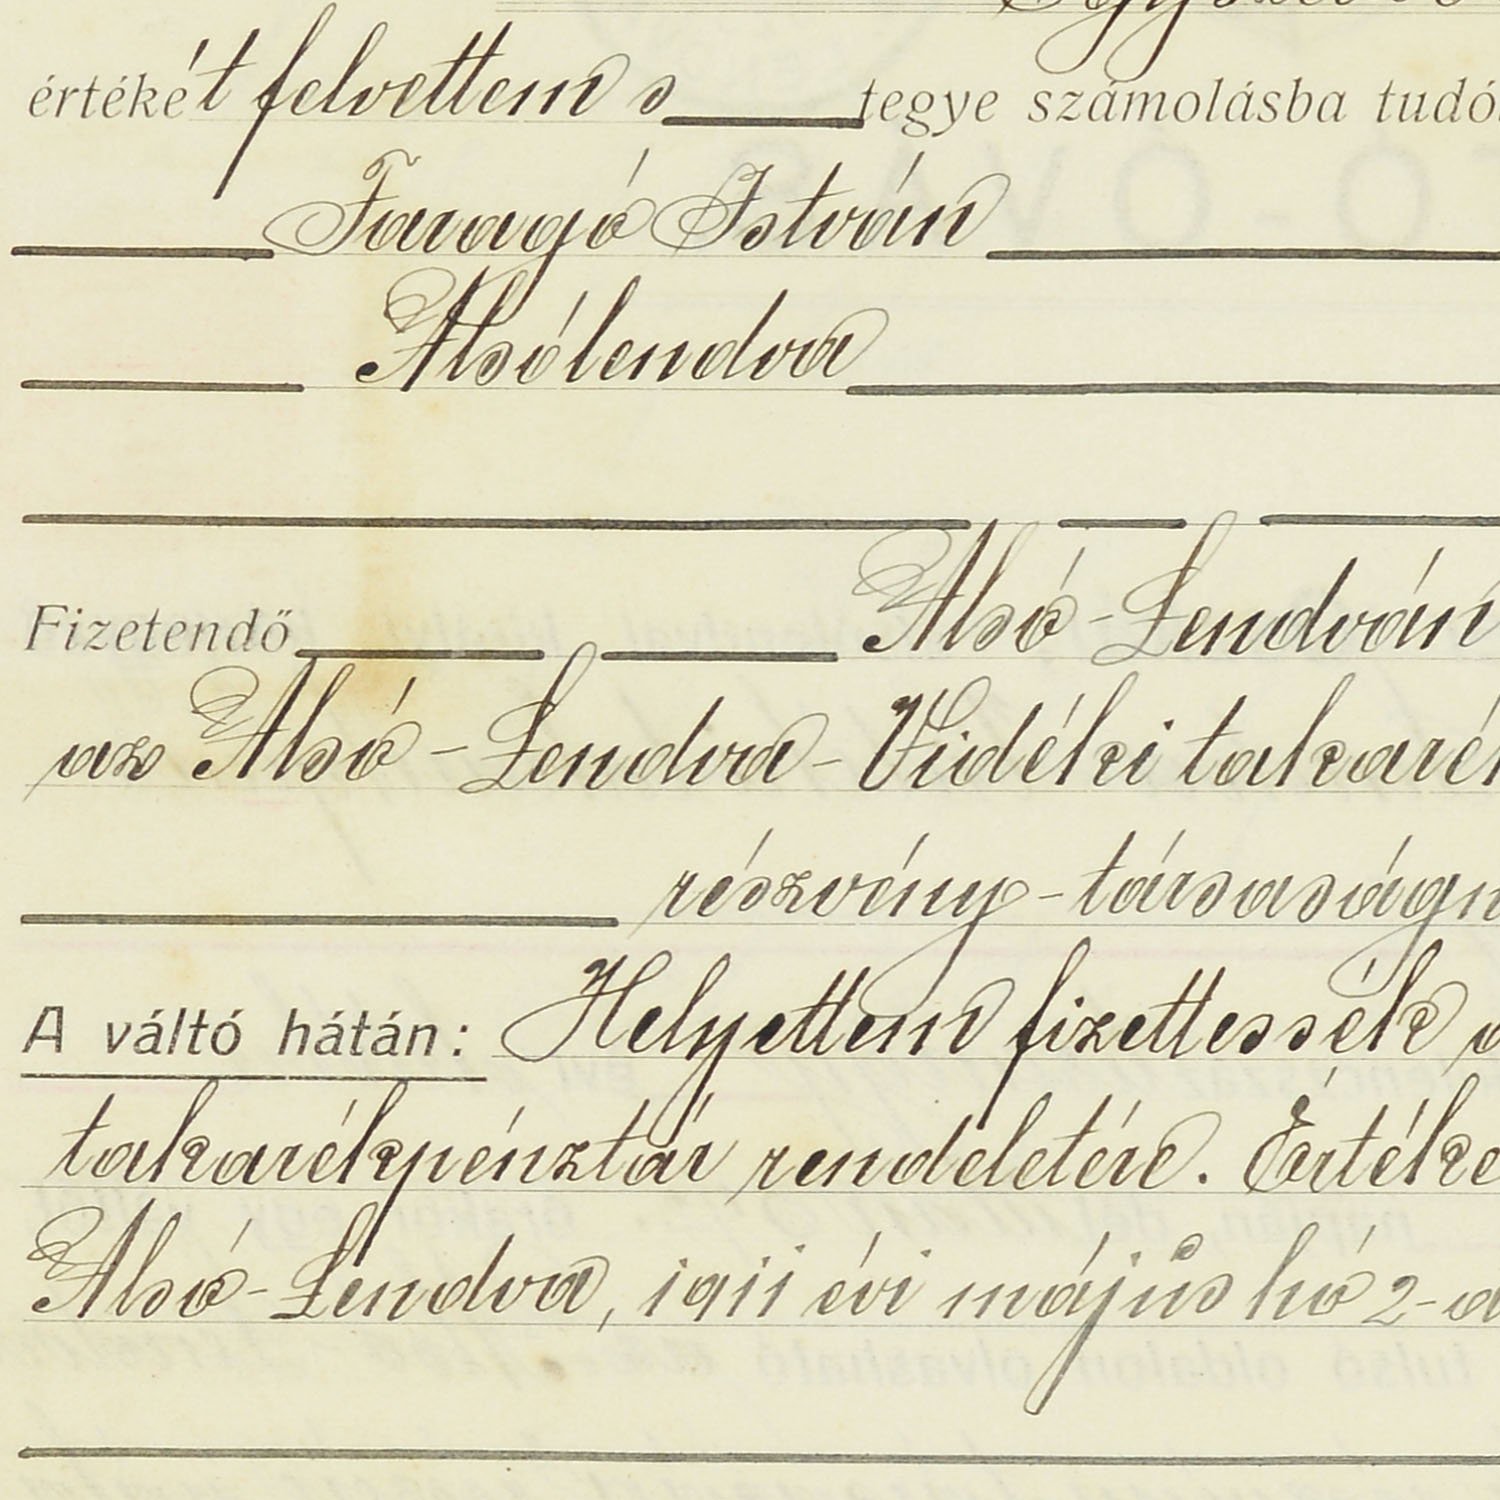 értékét felvettem s tegye számolásba
Faragó István
Alsólendva
Fizetendő Alsó-Lendván
az Alsó-Lendva-Vidéki takarék
részvény-társaságn
A váltó hátán: Helyettem fizettessék a
takarékpénztár rendeletére. Értéke
Alsó-Lendva, 1911 évi május hó 2-a